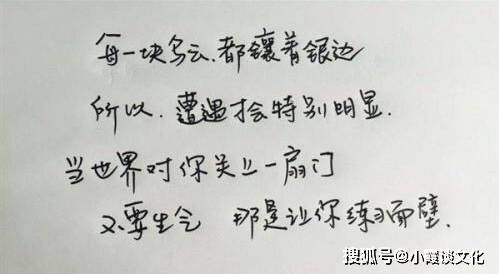 每一块乌云、都镶着银边
所以.遭遇才会特别明显.
当世界对你关上一扇门
不要生气 那是让你练习面壁.
搜狐号@小霞谈文化